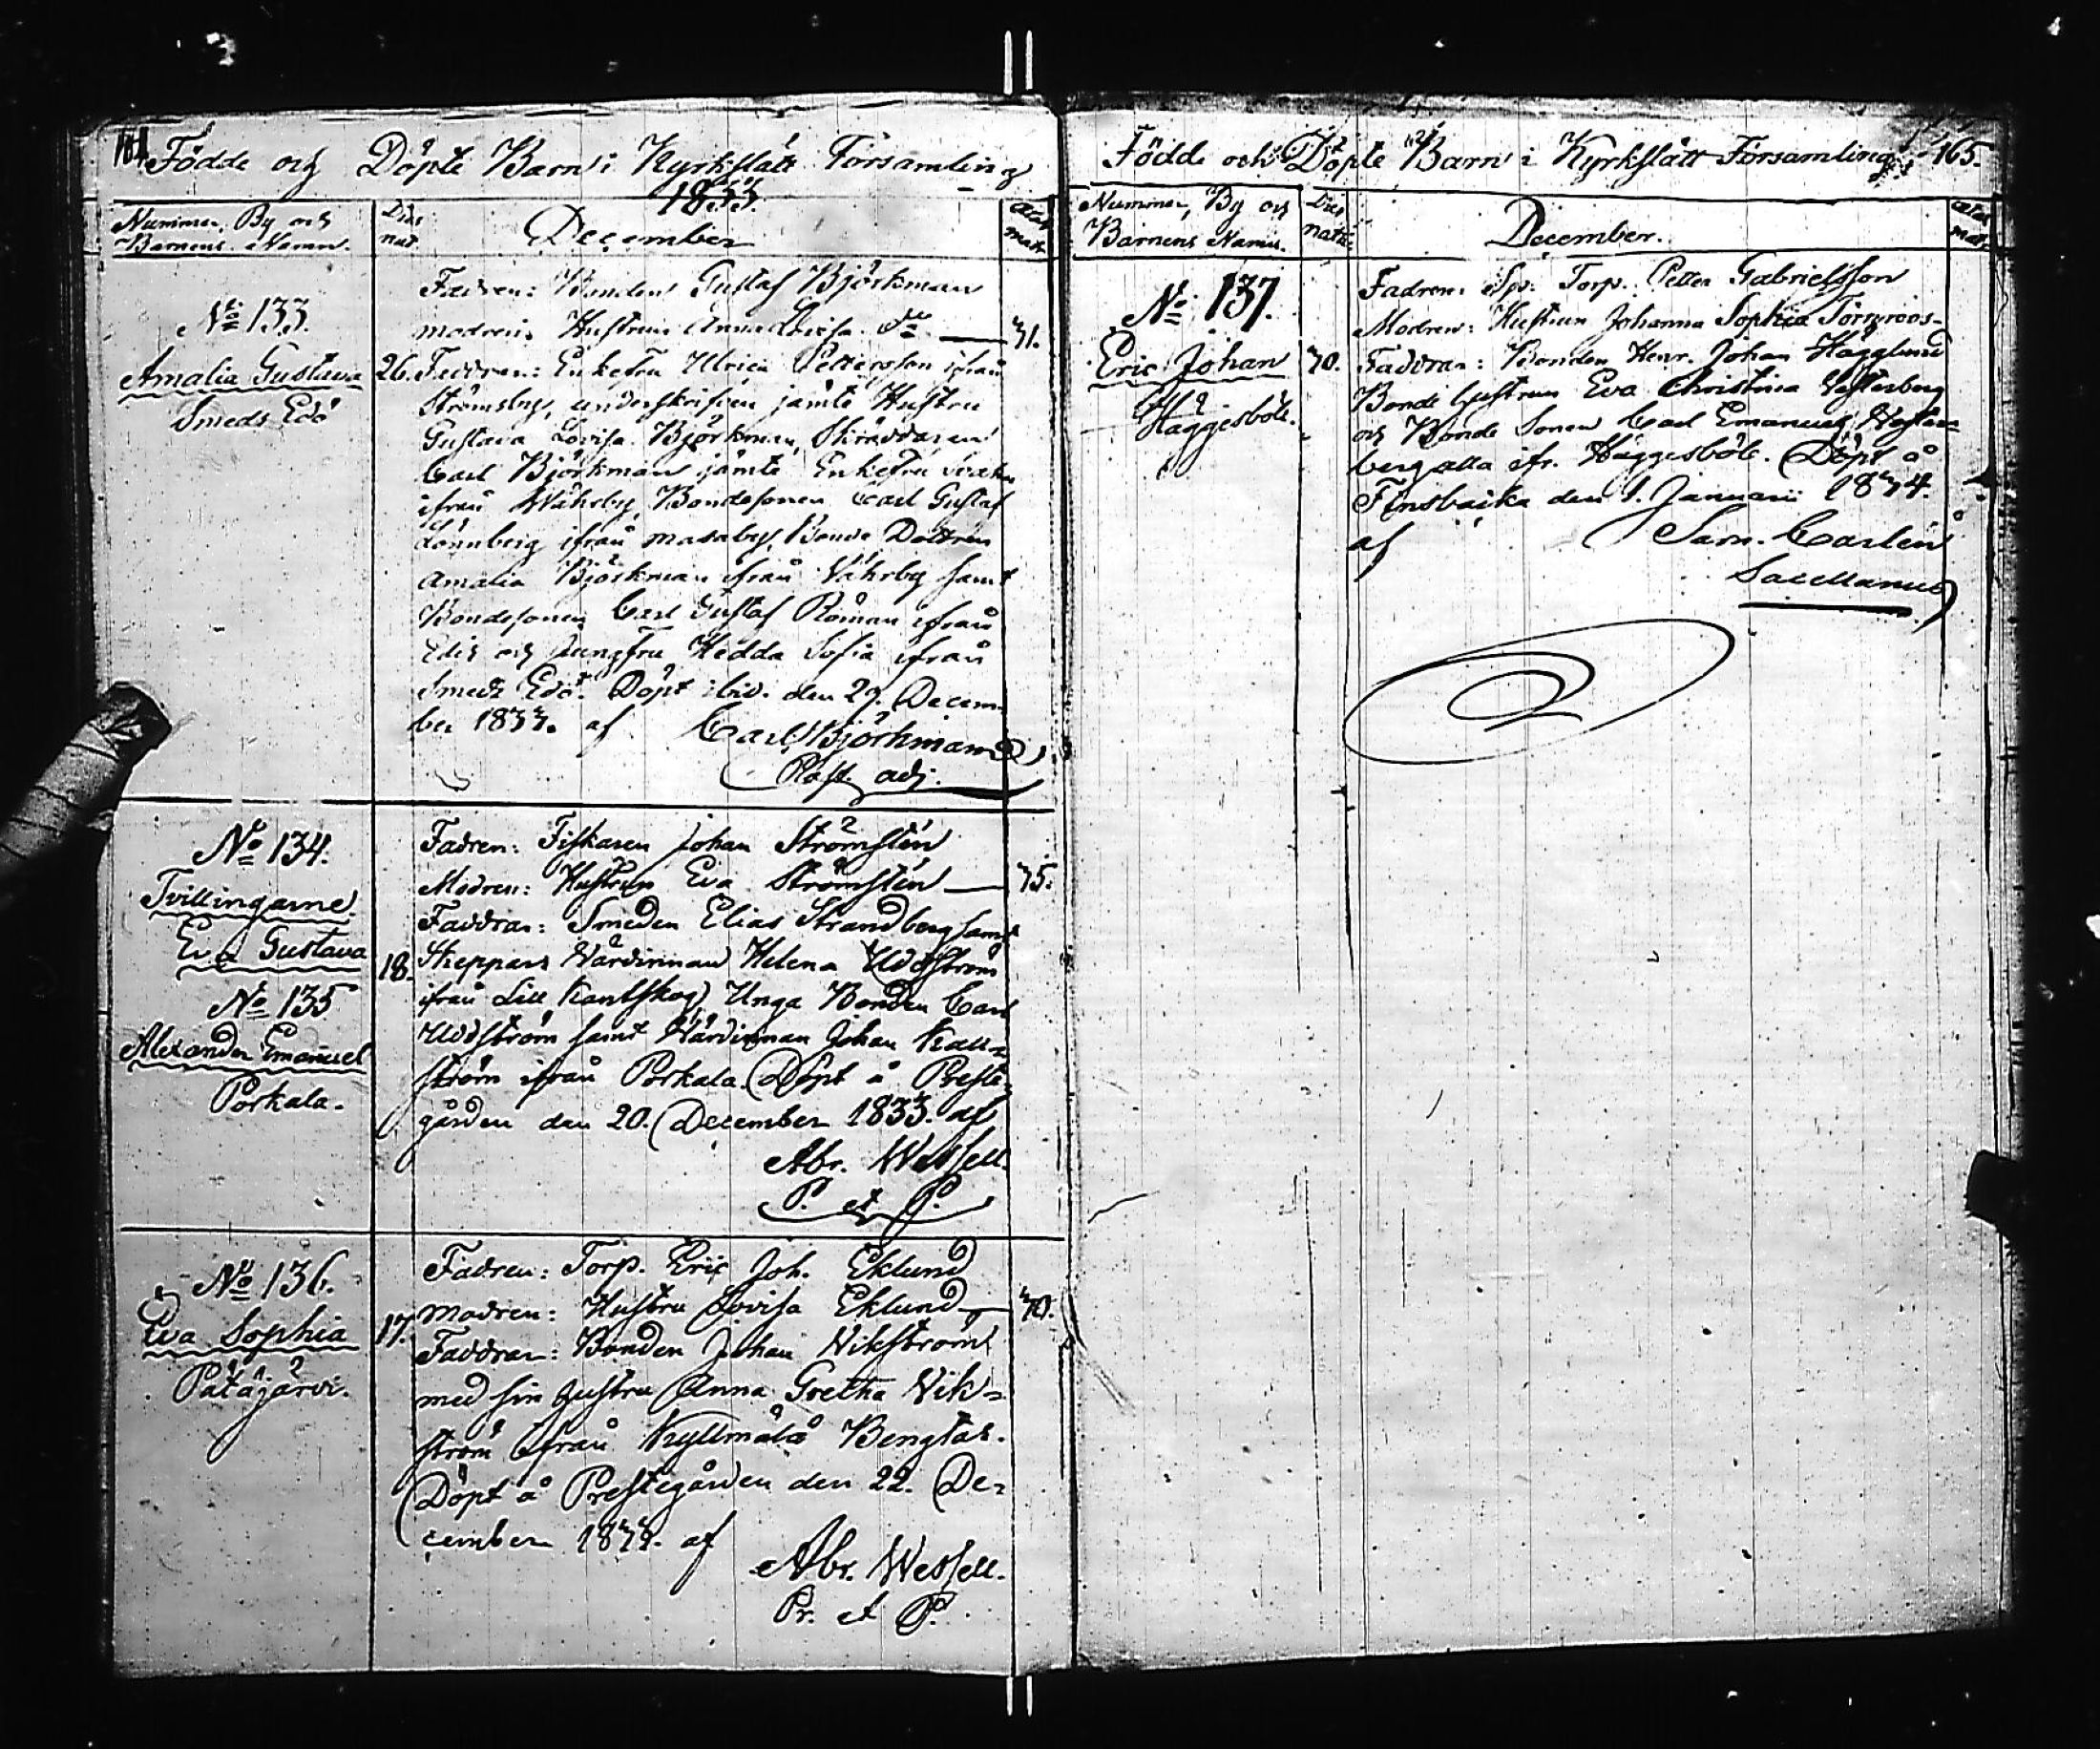 164. Födde och Döpte Barn i Kyrkslätt Församling
1833.
Nummer, By och
Barnens Namn.
Dies
nat.
December
ætas
matr.
No 133.
Amalia Gustava
Smeds Edö
26.
Fadren: Bonden Gustaf Björkman
modren: Hustrun Anna Lovisa do — 31.
Faddran: Enkefru Ulrica Pettersson ifrån
Strömsby, underskrifven jämte Hustru
Gustava Lovisa Björkman, Skräddaren
Carl Björkman jämte Enkefru
ifrån Båhrby, Bondesonen Carl Gustaf
Lönnberg ifrån Masaby, Bonde Dottren
Amalia Björkman ifrån Våhrby samt
Bondesonen Carl Gustaf Roman ifrån
Edis och Jungfru Hedda Sofia ifrån
Smeds Edö. Döpt ibid. den 29. Decem-
ber 1833. af Carl Björkman
Past. adj.
No 134.
Tvillingarne
Eva Gustava
No 135
Alexander Emanuel
Porkala.
18.
Fadren: Fiskaren Johan Strömstén
Modren: Hustrun Eva Strömstén — 35.
Faddrar: Smeden Elias Strandberg samt
Skeppars Värdinnan Helena Uddström
ifrån Lill Kantskog, Unga Bonden Carl
Uddström samt Värdinnan Johan Kall=
ström ifrån Porkala. Döpt å Preste-
gården den 20. December 1833. af
Abr. Wessell.
P. et P.
No 136.
Eva Sophia
Patäjärvi.
17.
Fadren: Torp. Eric Joh. Eklund
modren: Hustru Lovisa Eklund — 30.
Faddran: Bonden Johan Vikström
med sin hustru Anna Gretha Vik=
ström ifrån Kyllmälä Bengtas.
Döpt å Prestegården den 22. De=
cember 1833. af
Abr. Wessell.
Pr. et P.
Födde och Döpte Barn i Kyrkslätt Församling 165.
Nummer, By och
Barnens Namn.
Dies
nat.
December.
ætas
mat.
No 137.
Eric Johan
Häggesböle.
30.
Fadren: Sp: Torp. Petter Gabrielsson
Modren: Hustrun Johanna Sophia Törnroos-
Faddran: Bonden Henr. Johan Hägglund
Bonde hustrun Eva Christina Vesterberg
och Bonde Sonen Carl Emanuel Vester=
berg alla ifr. Häggesböle. Döpt å
Finsbacka den 1. Januarii 1834.
af Sam. Carlén
Sacellanus